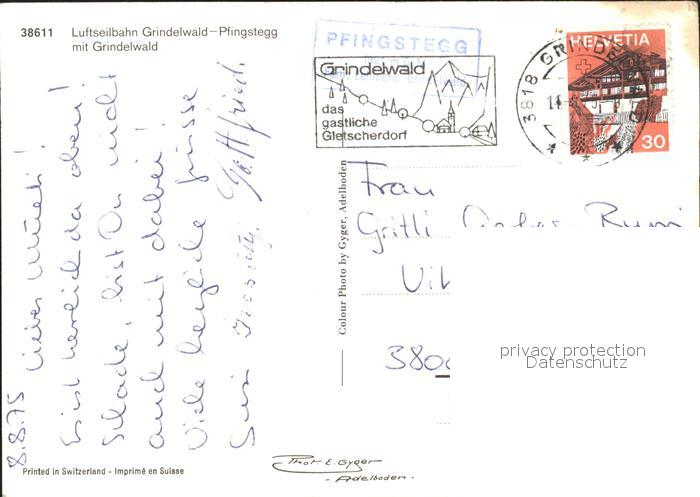 38611 Luftseilbahn Grindelwald–Pfingstegg
mit Grindelwald
PFINGSTEGG
Grindelwald
das
gastliche
Gletscherdorf
3818 GRINDEL
HELVETIA
30
8.8.75
Es ist herrlich da oben!
Schade, bist Du nicht
auch mit dabei!
Viele herzliche Grüsse
Gottfried
Colour Photo by Gyger, Adelboden
Frau
Gritli
380
privacy protection
Datenschutz
Printed in Switzerland - Imprimé en Suisse
Phot. E. Gyger
- Adelboden -